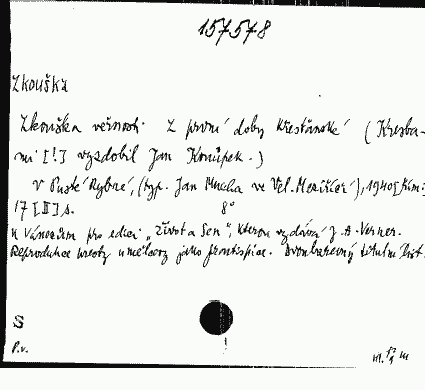 157578
Zkouška
Zkouška věrnosti. Z první doby křesťanské (Kresba-
mi [!] vyzdobil Jan Konůpek.)
V Pusté Rybné, (typ. Jan Mucha ve Vel. Meziříčí), 1940 [tím:]
17 [II] s. 8°
K Vánocům pro edici „Život a Sen", kterou vydává J. A. Verner.
Reprodukce kresby umělcovy jako frontispice. Dvoubarevný titulní list.
S
P.v.